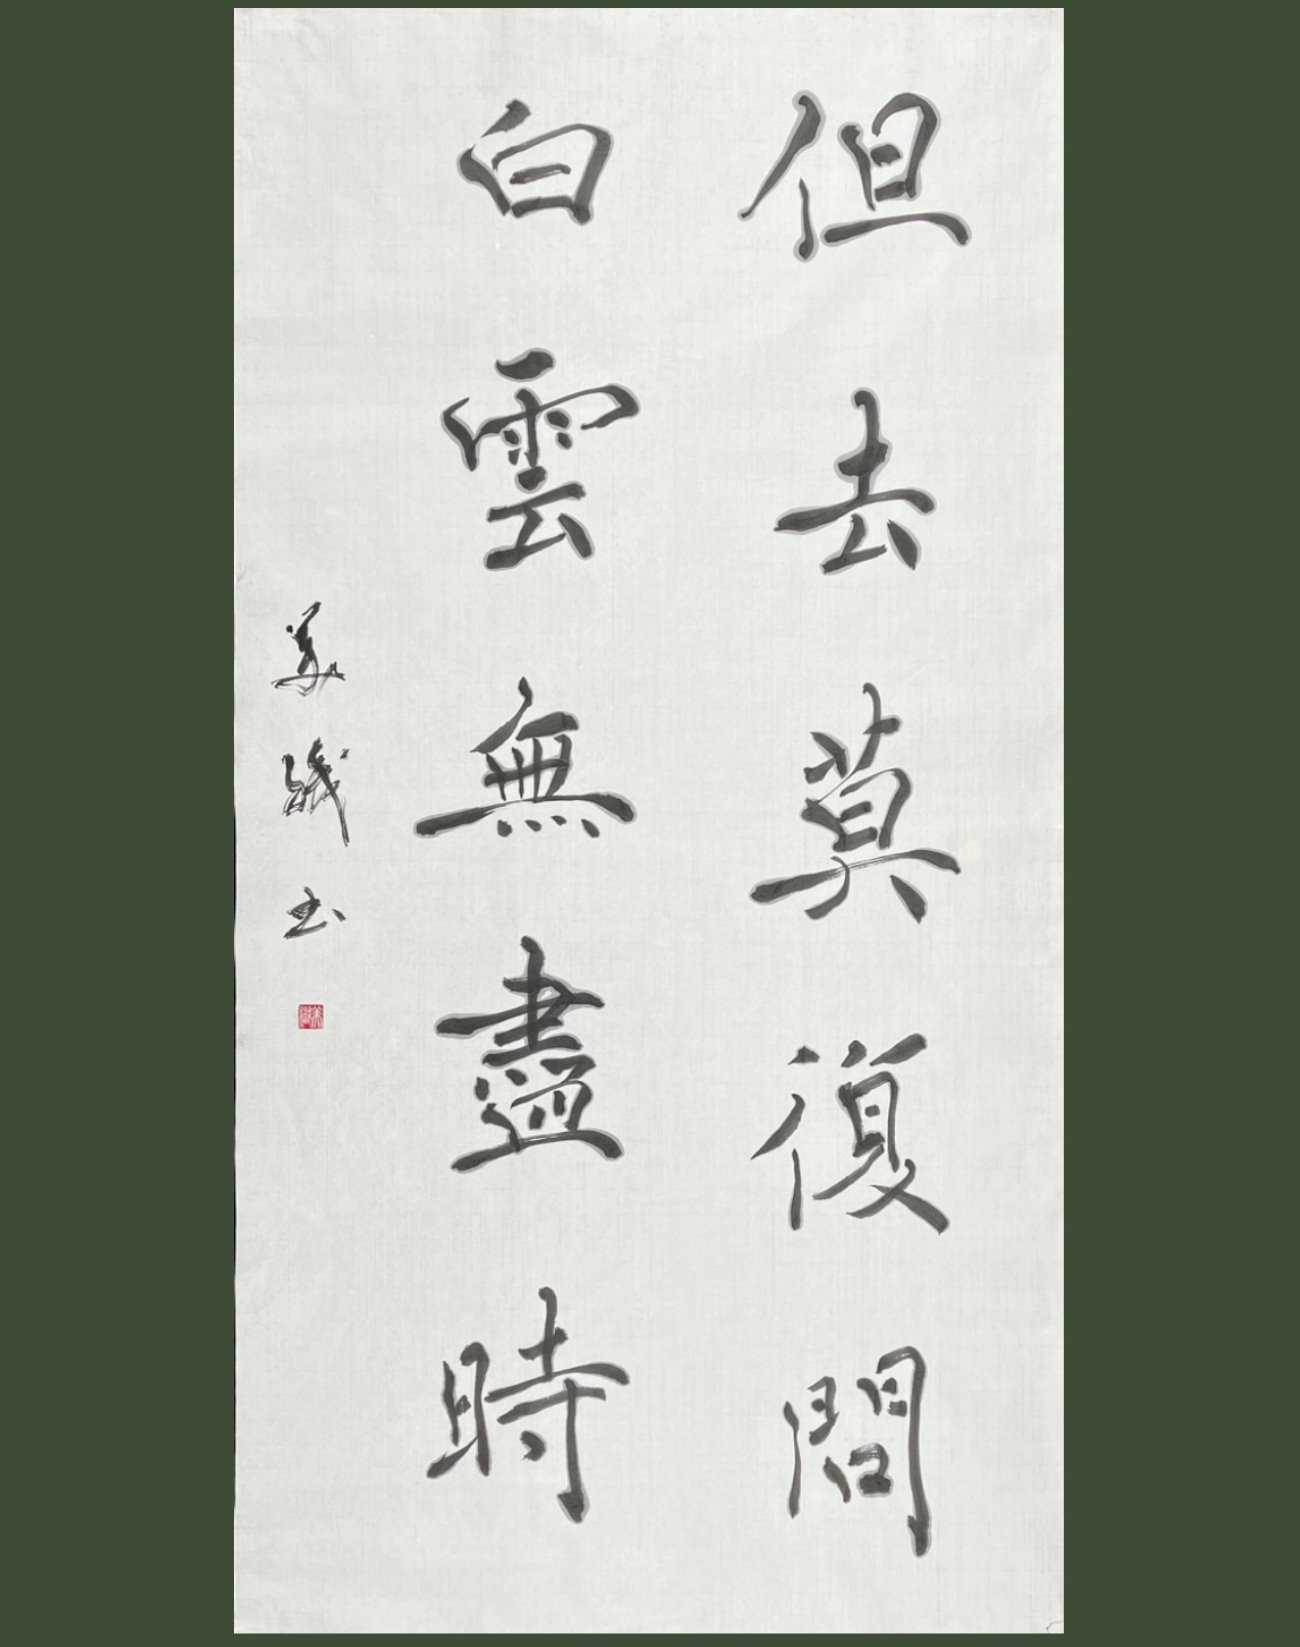 但去莫復問
白雲無盡時
美 書